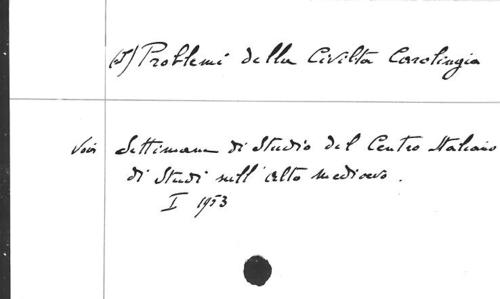 (I) Problemi della Civilta Carolingia
Voir Settimana di Studio del Centro Italiano
di Studi sull'alto medioevo.
I 1953